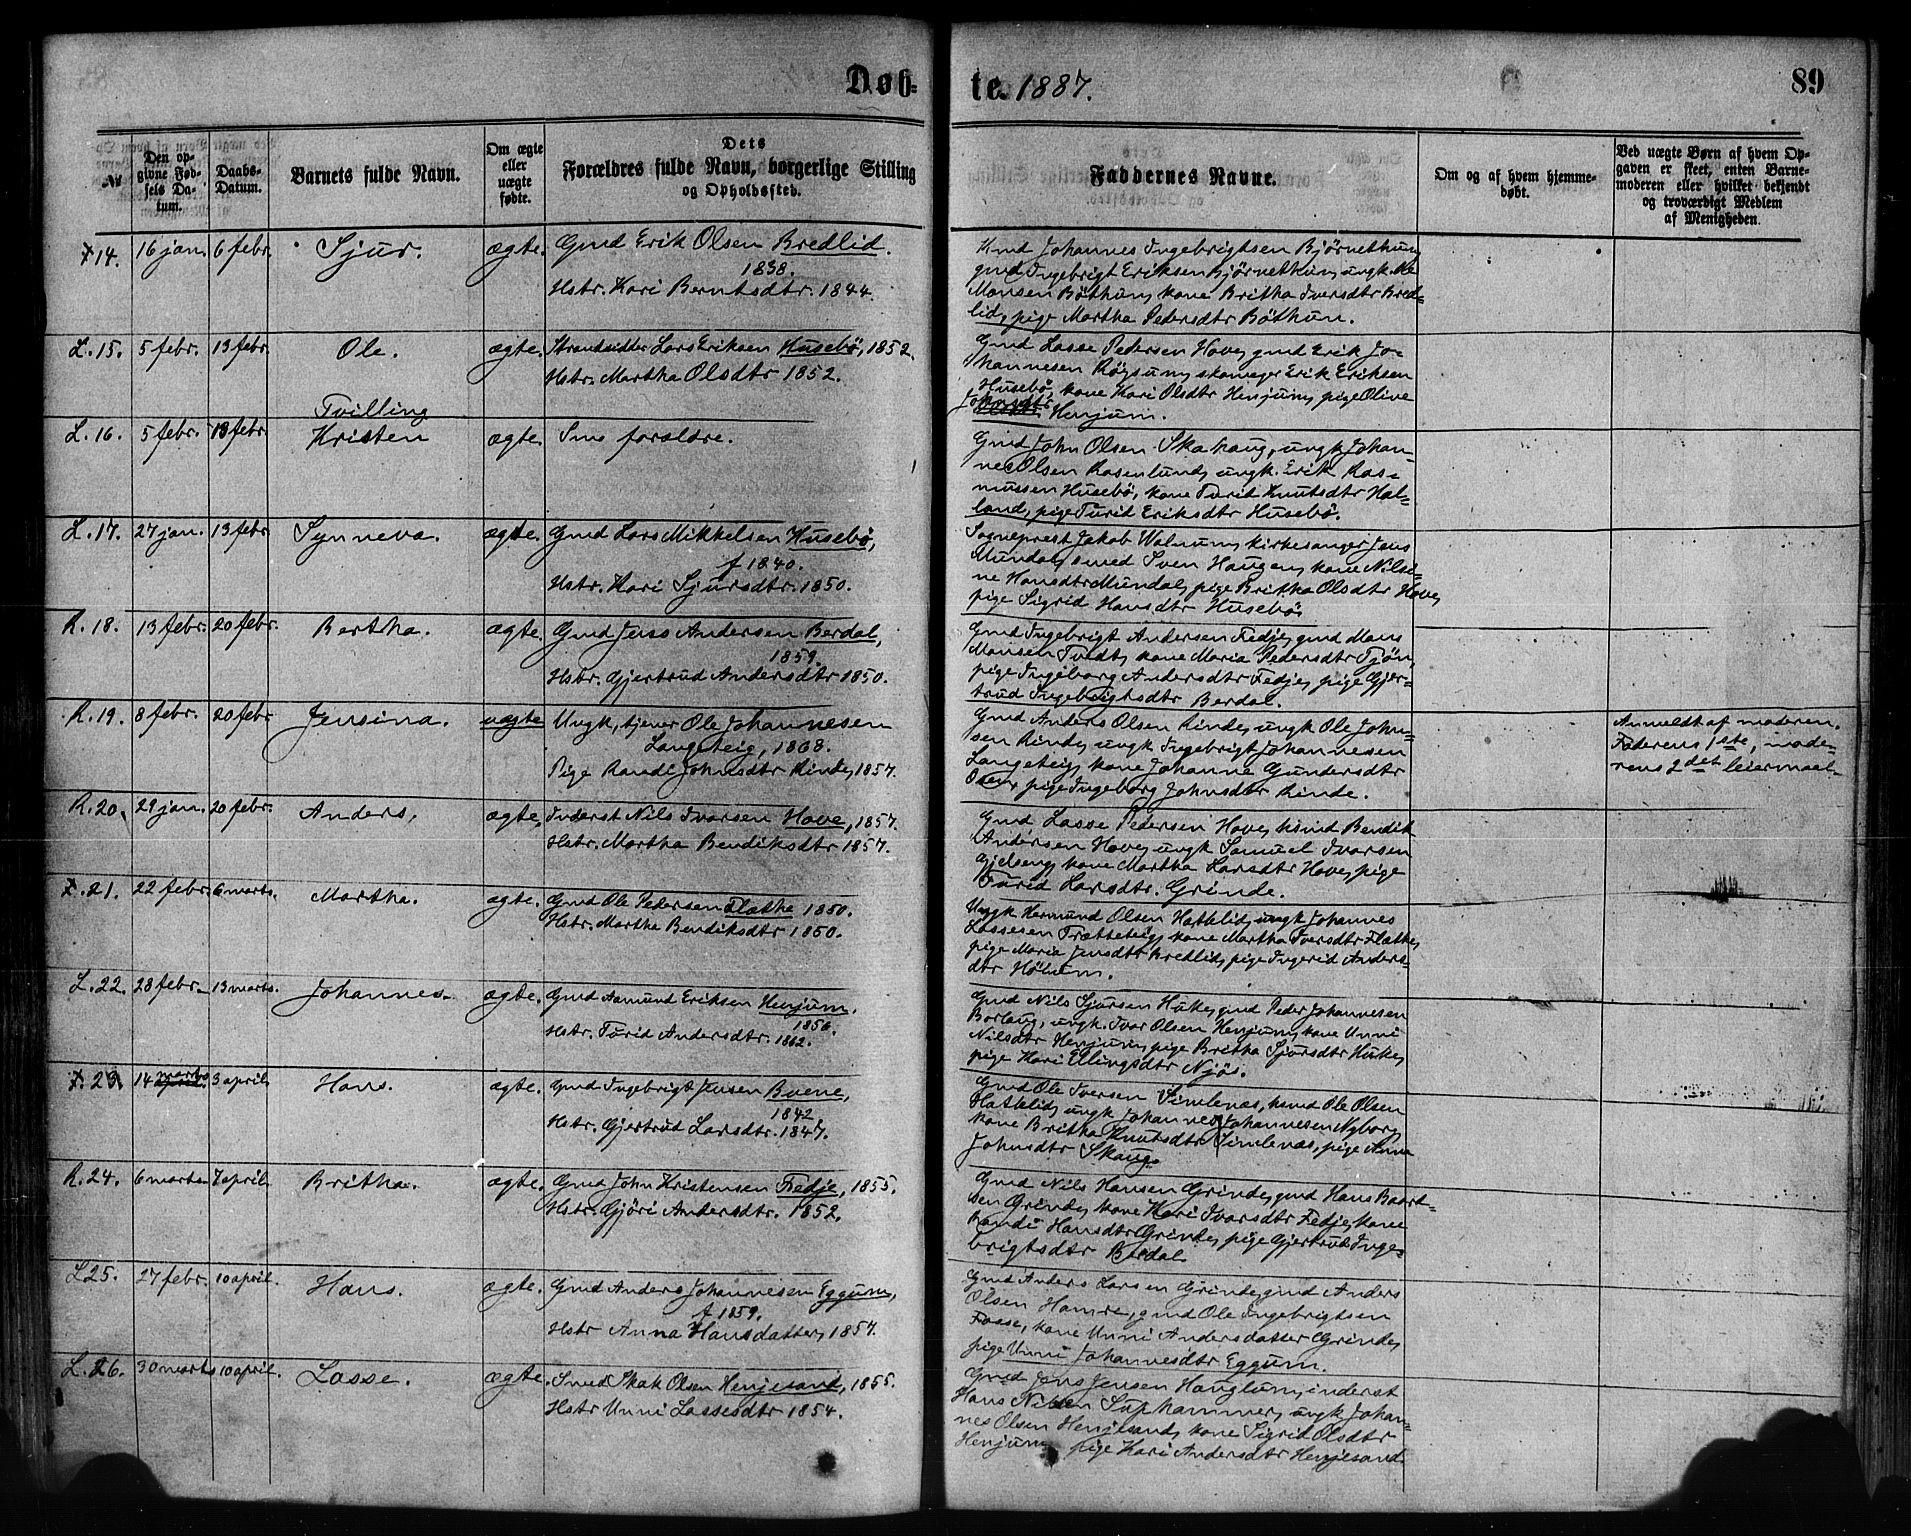 Døb=
te. 1887.
89
№
Den opgivne Fødsels Datum.
Daabs-Datum.
Barnets fulde Navn.
Om ægte eller uægte fødte.
Dets
Forældres fulde Navn, borgerlige Stilling
og Opholdssted.
Faddernes Navne.
Om og af hvem hjemmedøbt.
Ved uægte Børn af hvem Opgaven er skeet, enten Barnemoderen eller hvilket bekjendt og troværdigt Medlem af Menigheden.
14. 16 jan. 6 febr. Sjur. ægte. Gmd Erik Olsen Bredlid.
1838.
Hstr. Kari Berntsdtr. 1844.
Kmd Johannes Ingebrigtsen Bjørnethun,
gmd Ingebrigt Eriksen Bjørnethun, ungk.
Monsen Böthun, kone Britha Iversdtr Bred-
lid, pige Martha Pedersdtr Böthun.
L. 15. 5 febr. 13 febr. Ole. ægte. Strandsidder Lars Eriksen Husebö, 1852.
Hstr. Martha Olsdtr 1852.
Gmd Lasse Pedersen Hove, gmd Erik Jo-
hannesen Röysum, skomager Erik Eriksen
Husebö, kone Kari Olsdtr Henjum, pige Oline
Johnsdtr Henjum.
Tvilling
L. 16. 5 febr. 13 febr. Kristen ægte. Sms forældre.
Gmd John Olsen Skahaug, ungk Johan-
nes Olsen Rosenlund, ungk. Erik Ras-
mussen Husebö, kone Turid Knutsdtr Hal-
land, pige Turid Eriksdtr Husebö.
L. 17. 27 jan. 13 febr. Synneva. ægte. Gmd Lars Mikkelsen Husebö,
f 1840.
Hstr. Kari Sjursdtr. 1850.
Sogneprest Jakob Walnum, kirkesanger Jens
Mundal, smed Sven Haugen, kone Nilsi-
ne Hansdtr Mundal, pige Britha Olsdtr Hove,
pige Sigrid Hansdtr Husebö
R. 18. 13 febr. 20 febr. Bertha. ægte. Gmd Jens Andersen Berdal,
1859.
Hstr. Gjertrud Andersdtr 1850.
Gmd Ingebrigt Andersen Fedje, gmd Mons
Monsen Tvedt, kone Maria Pedersdtr Tjön,
pige Ingeborg Andersdtr Fedje, pige Gjer-
trud Ingebrigtsdtr Berdal.
R. 19. 8 febr. 20 febr Jensina. uægte Ungk, tjener Ole Johannesen
Langeteig, 1868.
Pige Randi Johnsdtr Rinde, 1857.
Gmd Anders Olsen Rinde, ungk Ole John-
sen Rinde, ungk Ingebrigt Johannesen
Langeteig, kone Johanne Gundersdtr
Osen, pige Ingeborg Johnsdtr Rinde.
Anmeldt af moderen.
Faderens 1ste, mode-
rens 2det leiermaal.
R. 20. 29 jan. 20 febr. Anders. ægte. Inderst Nils Ivarsen Hove, 1857.
Hstr. Martha Bendiksdtr 1857.
Gmd Lasse Pedersen Hove, hsmd Bendik
Andersen Hove, ungk Samuel Ivarsen
Gjelseng, kone Martha Larsdtr Hove, pige
Turid Larsdtr. Grinde.
21. 22 febr. 6 marts. Martha. ægte. Gmd Ole Pedersen Flathe 1850.
Hstr. Martha Bendiksdtr 1850.
Ungk Hermund Olsen Hattelid, ungk Johannes
Lassesen Trætteteig, kone Martha Iversdtr Flathe,
pige Maria Jensdtr Bredlid, pige Ingerid Anders-
dtr Hölum.
L. 22. 28 febr. 13 marts. Johannes. ægte. Gmd Aamund Eriksen Henjum.
1856.
Hstr. Turid Andersdtr. 1862.
Gmd Nils Sjursen Huke, gmd Peder Johannesen
Borlaug, ungk. Ivar Olsen Henjum, kone Unni
Nilsdtr Henjum, pige Britha Sjursdtr Huke,
pige Kari Ellingsdtr Njös.
23. 14 marts 3 april Hans. ægte. Gmd Ingebrigt Jensen Buene,
1842
Hstr. Gjertrud Larsdtr. 1847.
Gmd Ole Iversen Simlenæs, hsmd Ole Olsen
Hattelid, ungk Johannes Johannesen Nyborg,
kone Britha Knutsdtr Simlenæs, pige Anna
Johnsdtr Skaug.
R. 24. 6 marts 7 april Britha. ægte. Gmd John Kristensen Fedje, 1855.
Hstr. Gjöri Andersdtr. 1852.
Gmd Nils Hansen Grinde, gmd Hans Baard-
sen Grinde, kone Kari Ivarsdtr Fedje, kone
Randi Hansdtr Grinde, pige Gjertrud Inge-
brigtsdtr Berdal.
L 25. 27 febr. 10 april. Hans. ægte. Gmd Anders Johannesen Eggum,
f 1859.
Hstr Anna Hansdatter, 1857.
Gmd Anders Larsen Grinde, gmd Anders
Olsen Hamre, gmd Ole Ingebrigtsen
Fosse, kone Unni Andersdatter Grinde,
pige Unni Johannesdtr Eggum.
L. 26. 30 marts 10 april. Lasse. ægte. Smed Skak Olsen Henjesand, 1855.
Hstr Unni Lassesdtr 1854.
Gmd Jens Jensen Hauglum, inderst
Hans Nilsen Suphammer, ungk Johan-
nes Olsen Henjesand, kone Sigrid Olsdtr
Henjum, pige Kari Andersdtr Henjesand.